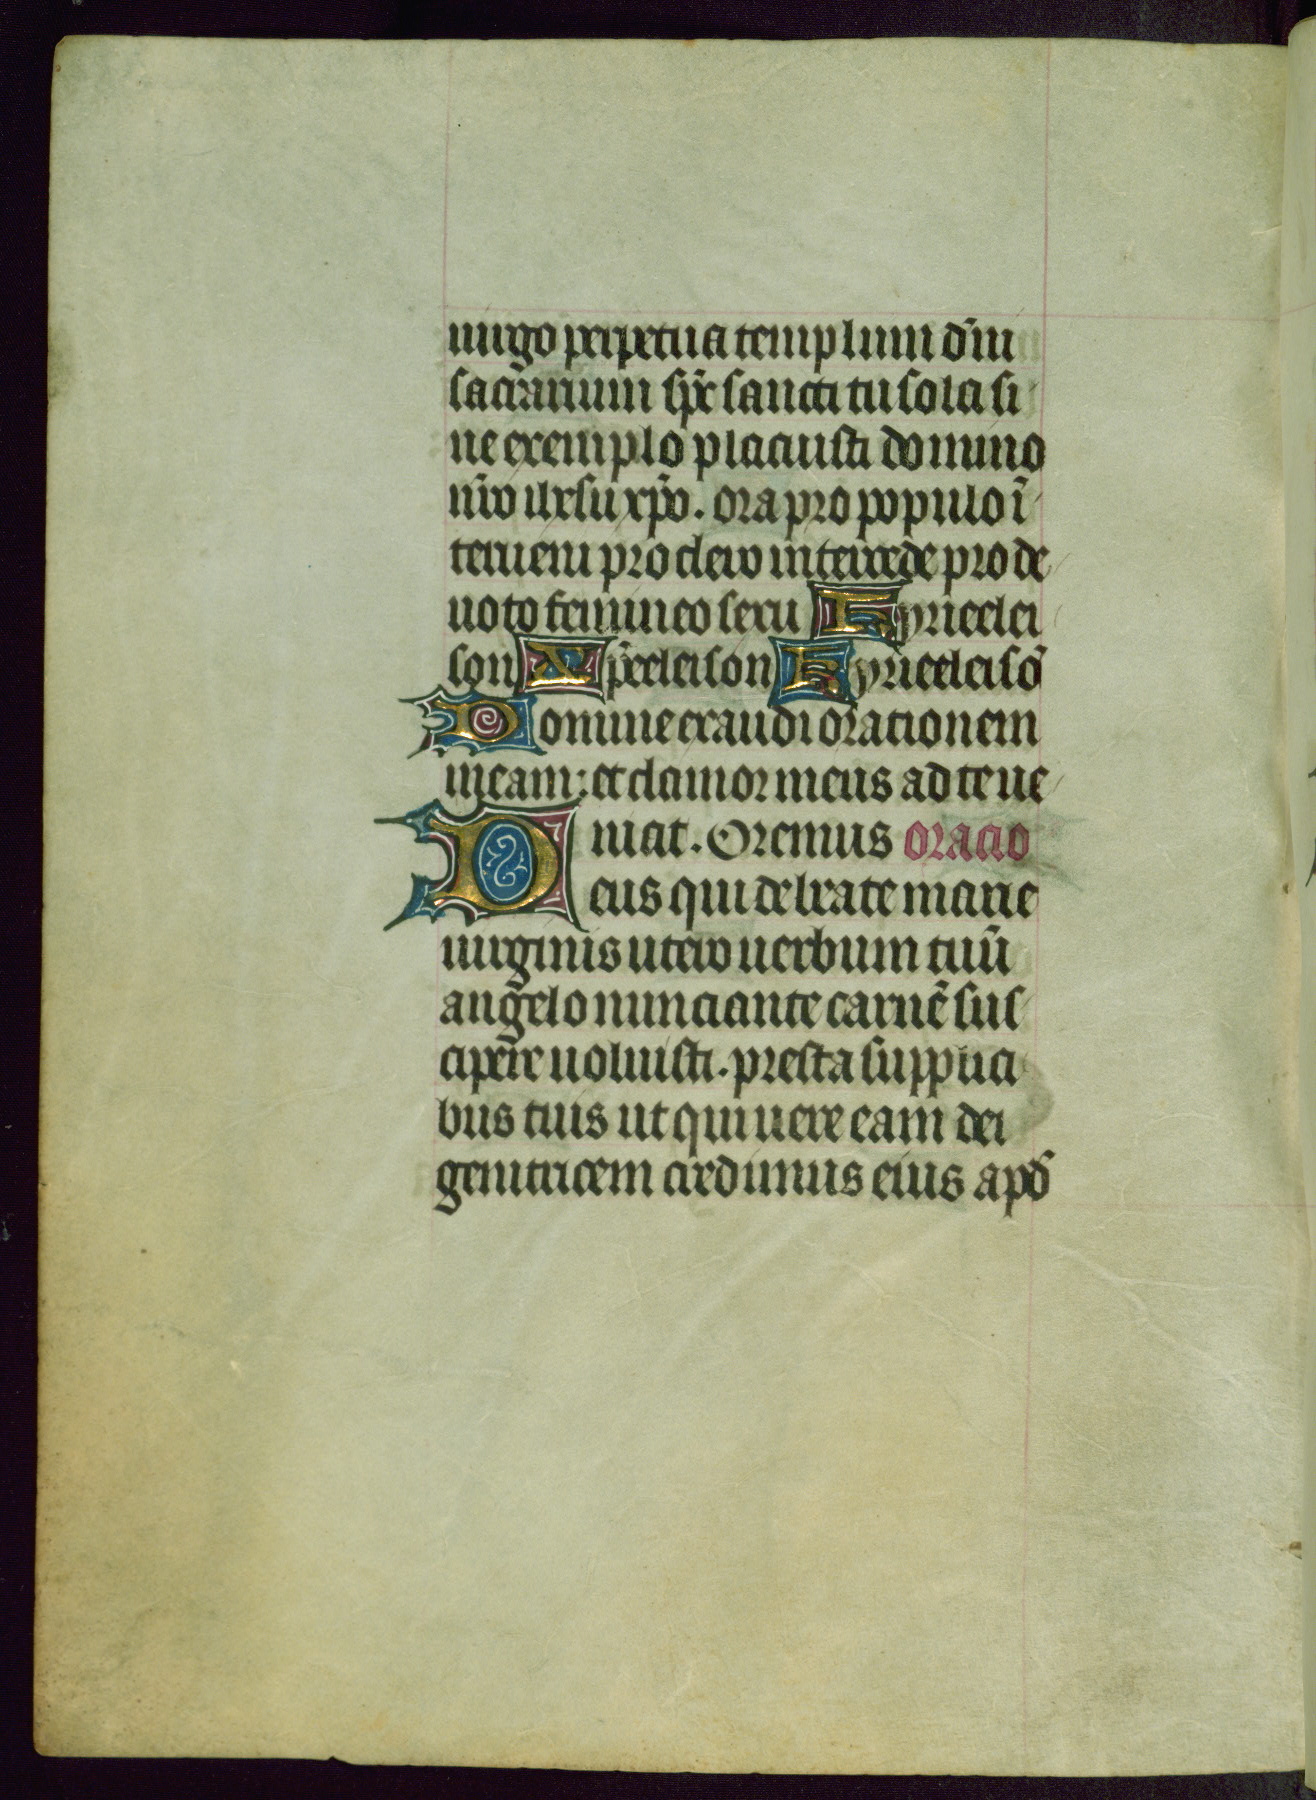 uirgo perpetua templum dñi
sacrarium sp̃c sancti tu sola si
ne exemplo placuisti domino
nr̃o ihesu xp̃o. ora pro populo ĩ
terueni pro clero intercede pro de
uoto femineo sexu Kyrieelei
son Xp̃eeleison Kyrieeleisõ
Domine exaudi orationem
meam: et clamor meus ad te ue
niat. Oremus oracio
Deus qui de beate marie
uirginis utero uerbum tuũ
angelo nunciante carnẽ sus
cipere uoluisti. presta supplici
bus tuis ut qui uere eam dei
genitricem credimus eius apd̾